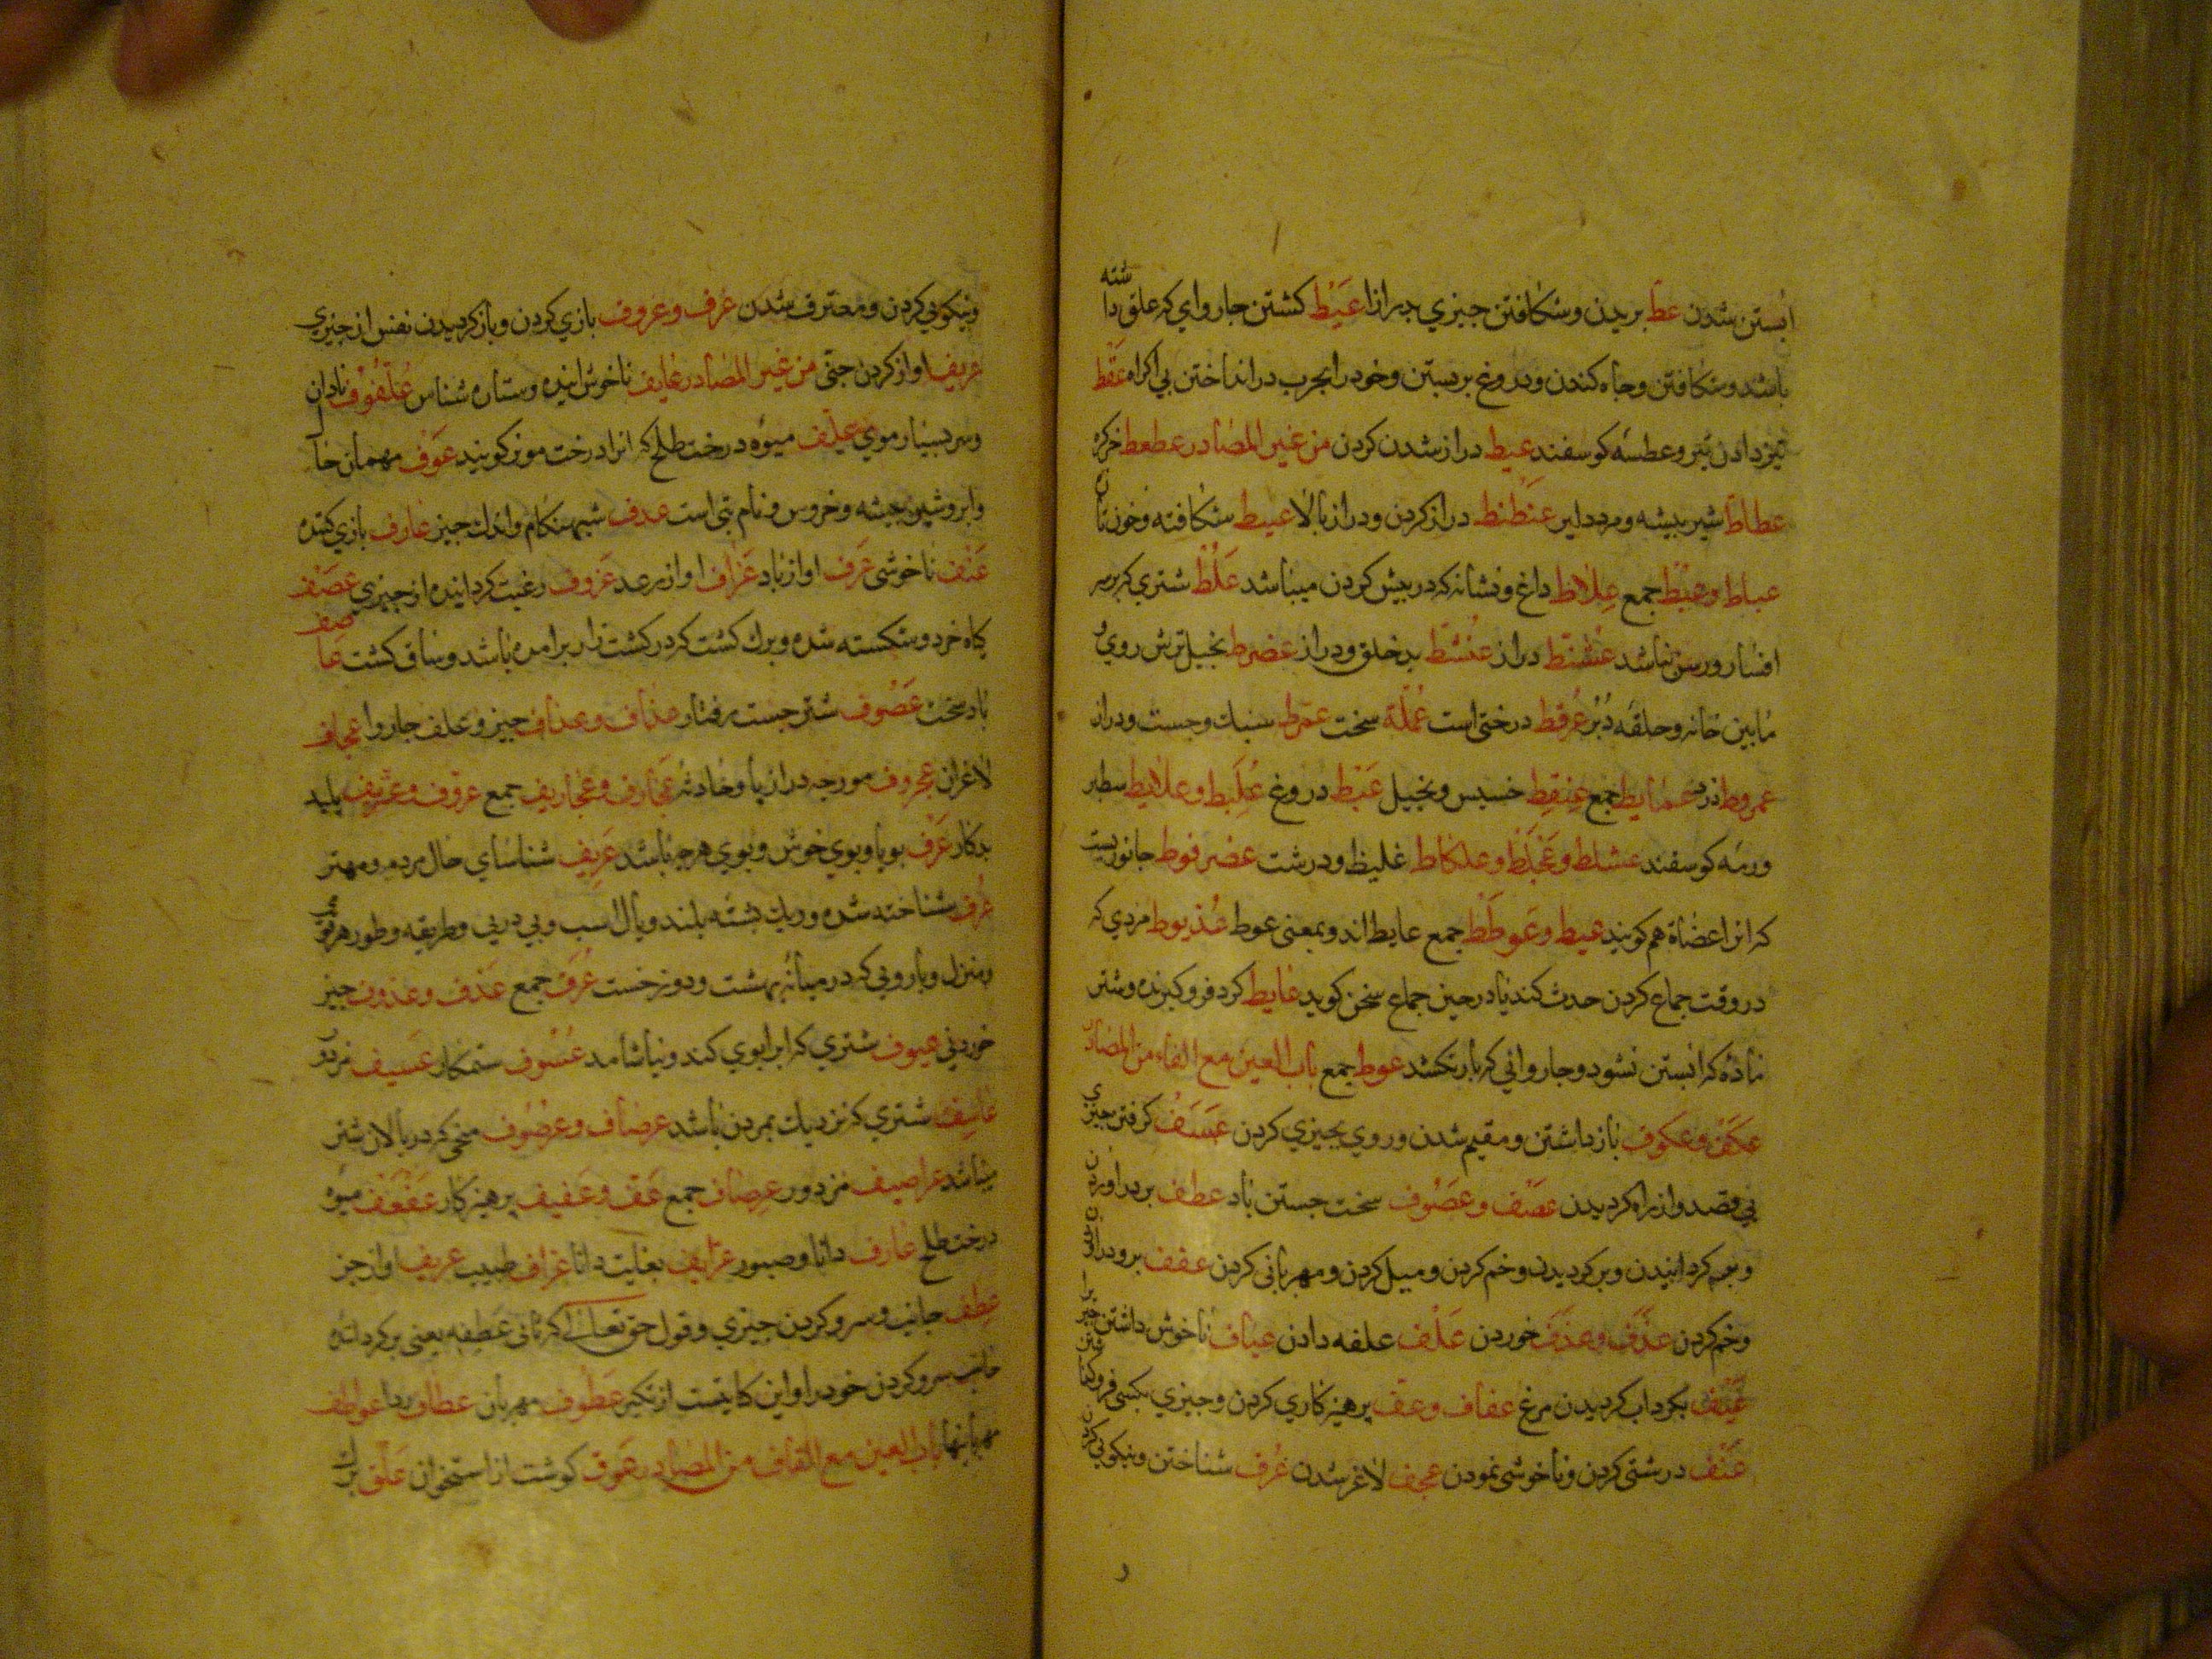 ابستن شدن عط بریدن وشکافتن چیزي بدرازا عبط کشتن جاروای که علق داشته
باشد وشکافتن وجاه کندن ودروغ بربستن وخود را بحرب درانداختن بی اکراه عفط
تیز دادن بز وعطسه کوسفند عیط دراز شدن کردن من غیر المصادر عطعط خرکره
عطاط شیر بیشه ومرد دلیر عنطنط دراز کردن ودراز بالا عبیط شکافته وخون تازه
عباط وعبط جمع علاط داغ ونشانه که در پیش کردن میباشد علط شتری که برسر
افسار ورسن نباشد عشنط دراز عنشط بدخلق ودراز عضرط بخیل ترش روي و
مابین خانه وحلقه دبر عرفط درختی است عملط سخت عمرط سبک وجست ودراز
عمروط دزد عماریط جمع عنقط خسیس وبخیل عبط دروغ علبط وعلابط سطبر
ورمه کوسفند عشلط وعجلط وعلکاط غلیظ ودرشت عضرفوط جانوریست
که انرا عضاة هم کویند عیط وعوطط جمع عایط اند وبمعنی عوط عذیوط مردي که
در وقت جماع کردن حدث کند یا در حین جماع سخن کوید عایط کرد فرو کیرنده وشتر
ماده که ابستن نشود وجاروائی که بار نکشد عوط جمع باب العین مع الفاء من المصادر
عکف وعکوف باز داشتن ومقیم شدن وروي بچیزي کردن عسف کرفتن چیزي
بی قصد واز راه کردیدن عصف وعصوف سخت جستن باد عطف بر دراوردن
کردانیدن وبر کردیدن وخم کردن ومیل کردن ومهربانی کردن عقف
وخم کردن عدف وعذف خوردن علف علفه دادن عیاف ناخوش داشتن چیز
عیف بکرداب کردیدن مرغ عفاف وعف پرهیزکاري کردن وچیزي بکسی
عنف درشتی کردن وناخوشی نمودن عجف لاغر شدن عرف شناختن ونیکویی کردن
ونیکویی کردن ومعترف شدن عزف وعزوف بازي کردن وباز کردیدن نفس از چیزي
عزیف اواز کردن جنی من غیر المصادر عایف ناخوش اینده وستاره شناس علفوف نادان
وسر بسیار موي علف میوه درخت طلح که انرا درخت موز کویند عوف مهمان خا
وابر وشیر بیشه وخروس ونام بتی است عدف شبهنکام واندک چیز عازف بازي کننده
عنف ناخوشی عزف اواز باد عزاف اواز رعد عزوف رغبت کرداننده از چیزي عصف
کاه خرد وشکسته شده وبرک کشت که در کشت زار برامده باشد وساق کشت عاصف
باد سخت عصوف شتر جست رفتار عداف وعذاف چیز وعلف جاروا عجاف
لاغران عجروف مورچه دراز پا وحادثه عجارف وعجاریف جمع عروف وعتریف پلید
بدکار عرف بویا وبوي خوش وبوي هرچه باشد عریف شناساي حال مردم ومهتر
عرف شناخته شده وریک پشته بلند ویال اسب وپی در پی وطریقه وطور
ومنزل وبارویی که در میانه بهشت ودوزخست عرف جمع عدف وعذوف چیز
خوردنی عیوف شتري که اب را بوي کند ونیاشامد عسوف ستمکار عسیف مزدور
عاسف شتري که نزدیک بمردن باشد عرصاف وعرصوف میخی که در پالان شتر
میباشد عراصیف مزدور عرصاف جمع عف وعفیف پرهیزکار عفعف میوه
درخت طلح عارف دانا وصبور عرایف بغایت دانا عراف طبیب عریف اواز جن
عطف جانب وسرو کردن چیزي وقول حق تعالی که ثانی عطفه یعنی بر کرداننده
جانب سرو کردن خود را واین کنایتست از تکبر عطوف مهربان عطاف ردا عواطف
مهربانیها باب العین مع القاف من المصادر عرق کوشت از استخوان علق